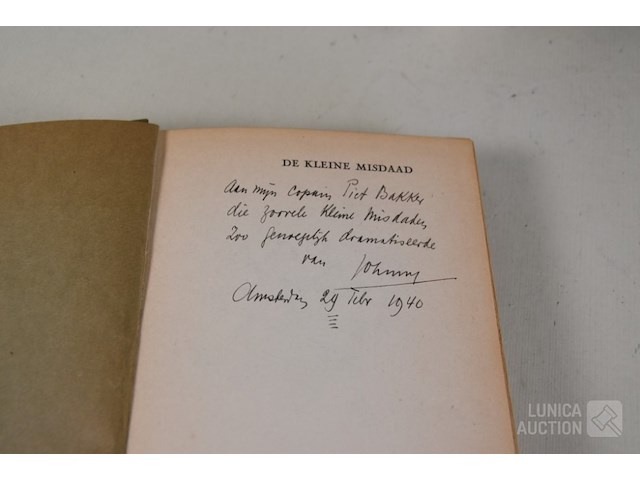 DE KLEINE MISDAAD
Aan mijn copain Piet Bakker
die zoovele kleine misdaden
zoo genoegelijk dramatiseerde
van Johnny
Amsterdam 29 Febr 1940
LUNICA
AUCTION